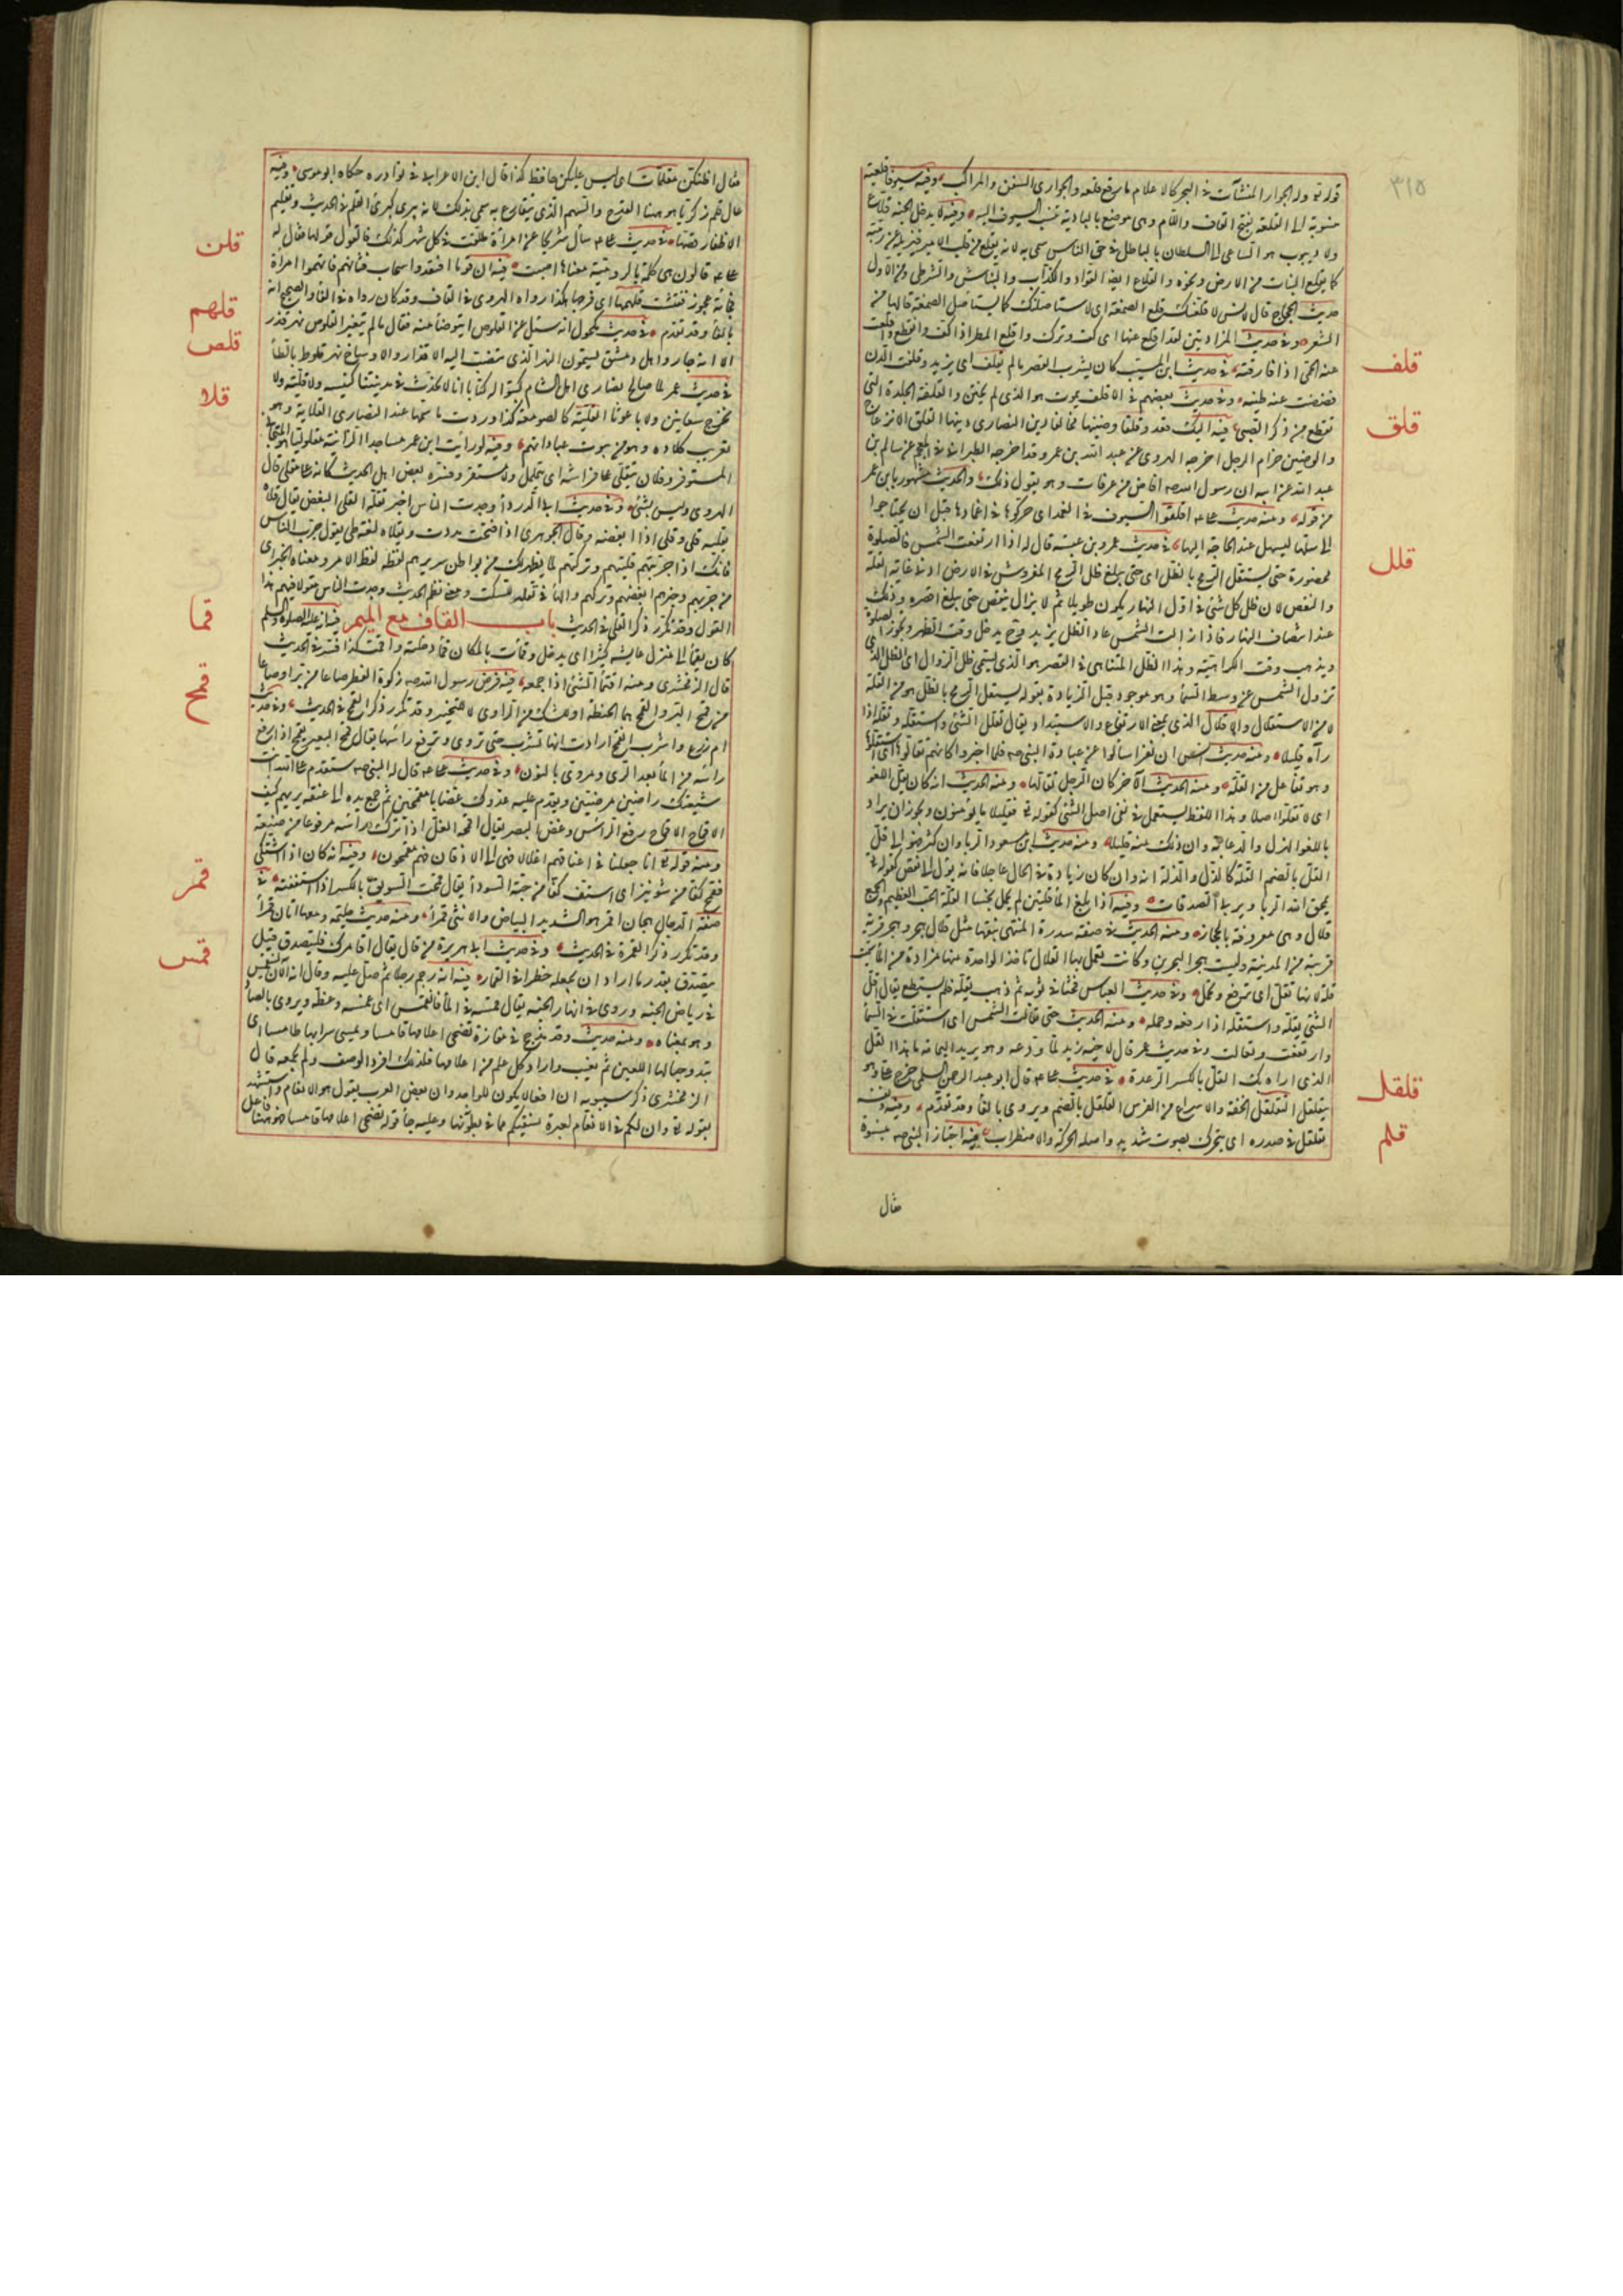 ٣١٥
قوله تع وله الجوار المنشآت في البحر كالاعلام ما رفع قلعه والجواري السفن والمراكب وفيه سيوفنا قلعية
منسوبة الى القلعة بفتح القاف واللام وهي موضع بالبادية تنسب السيوف اليه وفيه لا يدخل الجنة قلاع
ولا ديبوب هو الساعي الى السلطان بالباطل في حق الناس سمي به لانه يقلع
كما يقلع النبات من الارض ونحوه والقلاع ايضا القواد والكذاب والنباش والشرطي ومن الاول
حديث الحجاج قال لانس لاقلعنك قلع الصمغة اي لاستأصلنك كما يستأصل الصمغة قالعها من
الشعر وفي حديث المزادتين لقد اقلع عنها اي كف وترك واقلع المطر اذا كف وانقطع واقلعت
عنه الحمى اذا فارقته في حديث ابن المسيب كان يشرب العصير ما لم يقلف اي يزبد وقلفت الدن
فضضت عنه طينه وفي حديث بعضهم في الاقلف يموت هو الذي لم يختن والقلفة الجلدة التي
تقطع من ذكر الصبي فيه اليك تعدو قلقا وضينها مخالفا دين النصارى دينها القلق الانزعاج
والوضين حزام الرحل اخرجه الهروي عن عبد الله بن عمر وقد اخرجه الطبراني في المعجم عن سالم بن
عبد الله عن ابيه ان رسول الله صه افاض من عرفات وهو يقول ذلك والحديث مشهور بابن عمر
من قوله ومنه حديث علي اقلقوا السيوف في الغمد اي حركوها في اغمادها قبل ان يحتاجوا
الى سلها ليسهل عند الحاجة اليها في حديث عمرو بن عبسة قال له اذا ارتفعت الشمس فالصلوة
محضورة حتى يستقل الرمح بالظل اي حتى يبلغ ظل الرمح المغروس في الارض ادنى غاية القلة
والنقص لان ظل كل شئ في اول النهار يكون طويلا ثم لا يزال ينقص حتى يبلغ اقصره وذلك
عند انتصاف النهار فاذا زالت الشمس عاد الظل يزيد وح يدخل وقت الظهر وتجوز الصلوة
ويذهب وقت الكراهية وهذا الظل المتناهي في القصر هو الذي يسمى ظل الزوال اي الظل الذي
تزول الشمس عن وسط السماء وهو موجود قبل الزيادة بقوله يستقل الرمح بالظل هو من القلة
لا من الاستقلال والاقلال الذي بمعنى الارتفاع والاستبداد يقال تقلل الشئ واستقله وتقاله اذا
رآه قليلا ومنه حديث انس ان نفرا سألوا عن عبادة النبي صه فلما اخبروا كانهم تقالوها اي استقلوها
وهو تفاعل من القلة ومنه الحديث الآخر كان الرجل تقالها ومنه الحديث انه كان يقل اللغو
اي لا يلغو اصلا وهذا اللفظ يستعمل في نفي اصل الشئ كقوله تع فقليلا ما يؤمنون ويجوز ان يراد
باللغو الهزل والدعابة وان ذلك منه قليلا ومنه حديث ابن مسعود الربا وان كثر فهو الى قل
القل بالضم القلة كالذل والذلة اي وان كان زيادة في الحال عاجلا فانه يؤل الى نقص كقوله تع
يمحق الله الربا ويربي الصدقات وفيه اذا بلغ الماء قلتين لم يحمل نجسا القلة الحب العظيم والجمع
قلال وهي معروفة بالحجاز ومنه الحديث في صفة سدرة المنتهى نبقها مثل قلال هجر وهجر قرية
قريبة من المدينة وليست هجر البحرين وكانت تعمل بها القلال تاخذ الواحدة منها مزادة من الماء سميت
قلة لانها تقل اي ترفع وتحمل وفي حديث العباس فحثا في ثوبه ثم ذهب يقله فلم يستطع يقال اقل
الشئ يقله واستقله اذا رفعه وحمله ومنه الحديث حتى تقالت الشمس اي استقلت في السماء
وارتفعت وتعالت وفي حديث عمر قال لاخيه زيد لما ودعه وهو يريد اليمامة ما هذا القل
الذي اراه بك القل بالكسر الرعدة في حديث علي قال ابو عبد الرحمن السلمي خرج علي وهو
يتقلقل التقلقل الخفة والاسراع من الفرس القلقل بالضم ويروى بالفاء وقد تقدم وفيه ونفسه
تقلقل في صدره اي تتحرك بصوت شديد واصله الحركة والاضطراب فيه اجتاز النبي صه بنسوة
فقال
قلف
قلق
قلل
قلقل
قلم
فقال اظنكن مقلمات اي ليس عليكن حافظ كذا قال ابن الاعرابي في نوادره حكاه ابو موسى وفيه
عال قلم زكريا هو ههنا القدح والسهم الذي يتقارع به سمي بذلك لانه يبرى كبري القلم في الحديث وتقليم
الاظفار قصها في حديث علي سأل شريحا عن امرأة طلقت في كل شهر كذلك فالقول قولها فقال له
علي قالون هي كلمة بالرومية معناها اصبت فيه ان قوما افتقدوا سخاب فتاتهم فاتهموا امرأة
فجاءت عجوز ففتشت قلهمها اي فرجها هكذا رواه الهروي في القاف وقد كان رواه في الفاء والصحيح انه
بالفاء وقد تقدم في حديث مكحول انه سئل عن القلوص ايتوضأ منه فقال ما لم يتغير القلوص نهر قذر
الا انه جار واهل دمشق يسمون النهر الذي تنصب اليه الاقذار والاوساخ نهر قلوط بالطاء
في حديث عمر لما صالح نصارى اهل الشام كتبوا له كتابا انا لا نحدث في مدينتنا كنيسة ولا قلية ولا
نخرج سعانين ولا باعوثا القلية كالصومعة كذا وردت واسمها عند النصارى القلاية وهو
تعريب كلاده وهو من بيوت عباداتهم وفيه لو رأيت ابن عمر ساجدا لرأيته مقلوليا هو المتجافي
المستوفز وفلان يتقلى على فراشه اي يتململ ولا يستقر وفسره بعض اهل الحديث كانه على مقلى قال
الهروي وليس بشئ وفي حديث ابي الدرداء وجدت الناس اخبر تقله القلى البغض يقال قلاه
يقليه قلى وقلى اذا ابغضه وقال الجوهري اذا فتحت مددت ويقلاه لغة طي يقول جرب الناس
فانك اذا جربتهم قليتهم وتركتهم لما يظهر لك من بواطن سرايرهم لفظه لفظ الامر ومعناه الخبر اي
من جربهم وخبرهم ابغضهم وتركهم والهاء في تقله للسكت ومعنى نظم الحديث وجدت الناس مقولا فيهم هذا
القول وقد تكرر ذكر القلى في الحديث باب القاف مع الميم فيه انه عليه الصلوة والسلم
كان يقمأ الى منزل عايشة كثيرا اي يدخل وقمأت بالمكان قمأ دخلته واقمت كذا فسر في الحديث
قال الزمخشري ومنه اقتمأ الشئ اذا جمعه فيه فرض رسول الله صه زكوة الفطر صاعا من بر او صاعا
من قمح البر والقمح هما الحنطة او للشك من الراوي لا للتخيير وقد تكرر ذكر القمح في الحديث وفي حديث
ام زرع واشرب فاتقمح ارادت انها تشرب حتى تروى وترفع رأسها يقال قمح البعير يقمح اذا رفع
رأسه من الماء بعد الري ويروى بالنون وفي حديث علي قال له النبي صه ستقدم على الله انت
شيعتك راضين مرضيين ويقدم عليه عدوك غضابا مقمحين ثم جمع يده الى عنقه يريهم كيف
الاقماح الاقماح رفع الرأس وغض البصر يقال اقمحه الغل اذا ترك رأسه مرفوعا من ضيقه
ومنه قوله تع انا جعلنا في اعناقهم اغلالا فهي الى الاذقان فهم مقمحون وفيه انه كان اذا اشتكى
تقمح كفا من شونيز اي استف كفا من حبة السوداء يقال قمحت السويق بالكسر اذا استففته في
صفة الدجال هجان اقمر هو الشديد البياض والانثى قمراء ومنه حديث حليمة ومعها اتان قمراء
وقد تكرر ذكر القمرة في الحديث وفي حديث ابي هريرة من قال تعال اقامرك فليتصدق قيل
يتصدق بقدر ما اراد ان يجعله خطرا في القمار فيه انه رجم رجلا ثم صلى عليه وقال انه الآن لينغمس
في رياض الجنة وروي في انهار الجنة يقال قمسه في الماء فانقمس اي غمسه وغطه ويروى بالصاد
وهو بمعناه ومنه حديث وفد مذحج في مفازة تضحى اعلامها قامسا ويمسي سرابها طامسا اي
تبدو جبالها للعين ثم تغيب واراد كل علم من اعلامها فلذلك افرد الوصف ولم يجمعه قال
الزمخشري ذكر سيبويه ان افعالا يكون للواحد وان بعض العرب يقول هو الانعام واستشهد
بقوله تع وان لكم في الانعام لعبرة نسقيكم مما في بطونها وعليه جاء قوله تضحى اعلامها قامسا
قلن
قلهم
قلص
قلا
قما
قمح
قمر
قمس